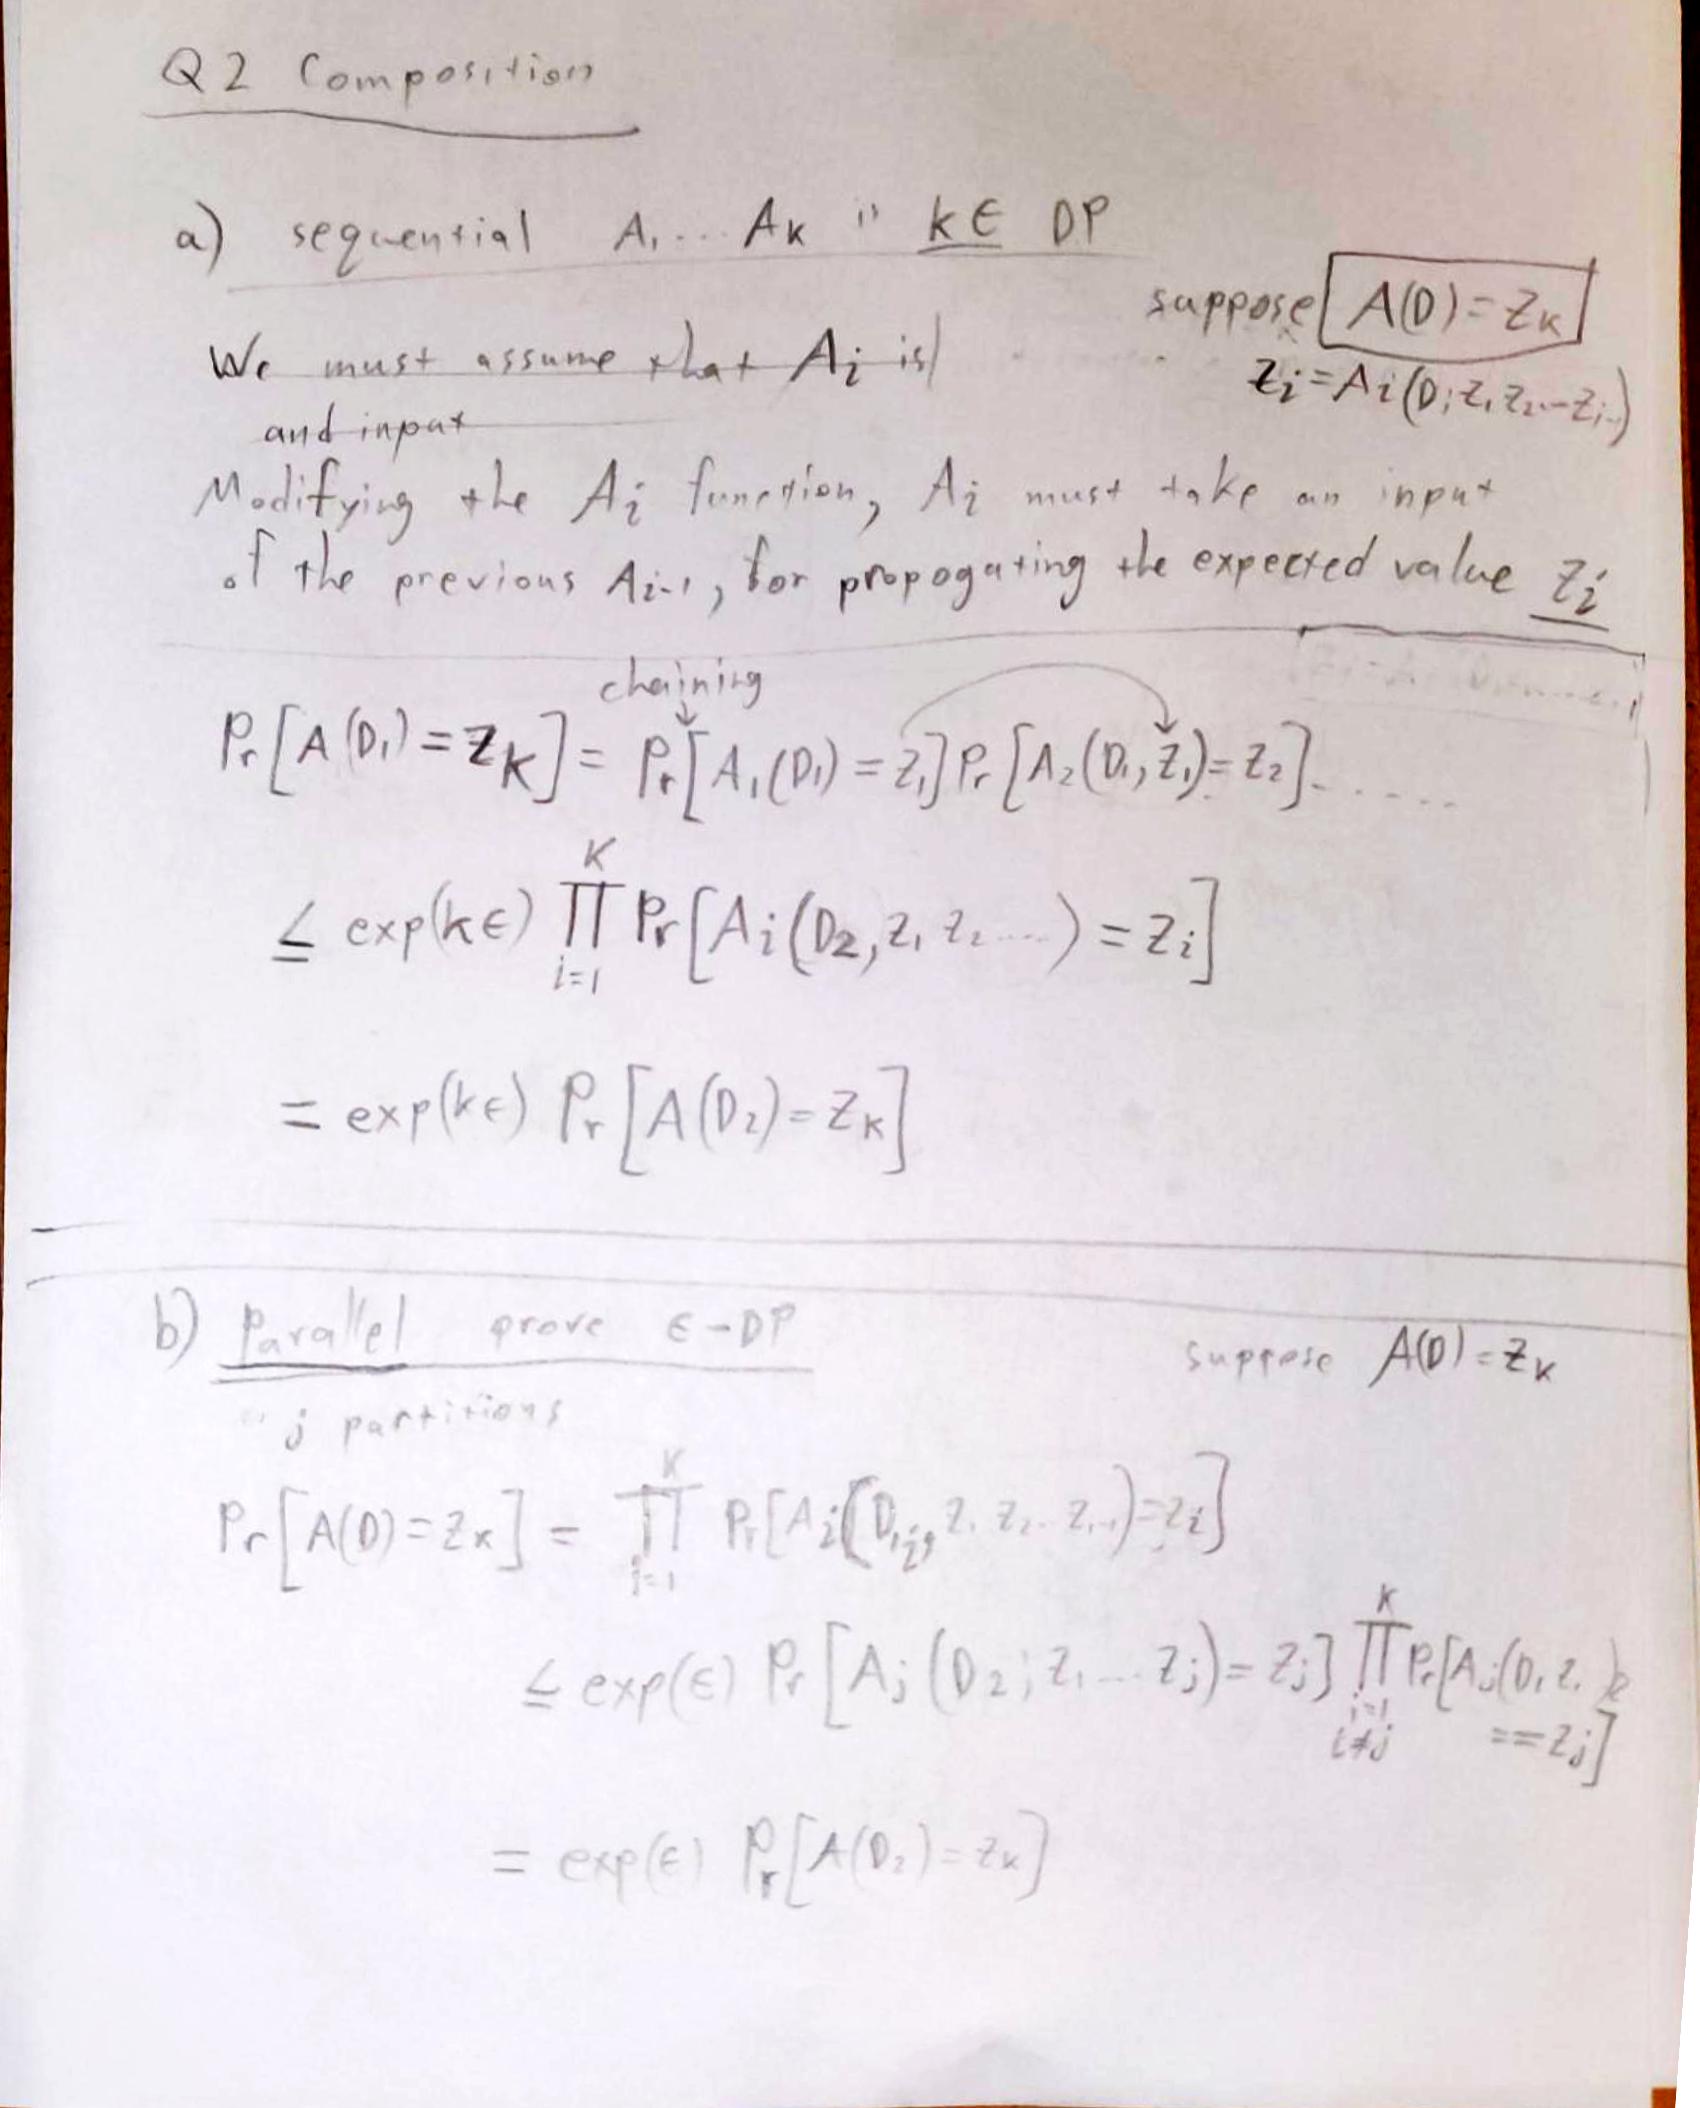 Q2 Composition
a) sequential A₁...Aₖ " kϵ DP
suppose A(D) = Zₖ
We must assume that Aᵢ is
Zᵢ = Aᵢ(D; Z₁ Z₂...Zᵢ₋₁)
and input
Modifying the Aᵢ function, Aᵢ must take an input
of the previous Aᵢ₋₁, for propogating the expected value Zᵢ
chaining
Pr[A(D₁) = Zₖ] = Pr[A₁(D₁) = Z₁] Pr[A₂(D₁, Z₁) = Z₂] ......
≤ exp(kϵ) ∏ᵢ₌₁ᴷ Pr[Aᵢ(D₂, Z₁ Z₂ ....) = Zᵢ]
= exp(kϵ) Pr[A(D₂) = Zₖ]
b) Parallel prove ϵ-DP
suppose A(D) = Zₖ
" j partitions
Pr[A(D) = Zₖ] = ∏ᵢ₌₁ᴷ Pr[Aᵢ(D₁ⱼ, Z₁ Z₂.. Zᵢ₋₁) = Zᵢ]
≤ exp(ϵ) Pr[Aⱼ(D₂; Z₁ ... Zⱼ) = Zⱼ] ∏ᵢ₌₁,ᵢ≠ⱼᴷ Pr[Aⱼ(D, Z₁ )
== Zⱼ]
= exp(ϵ) Pr[A(D₂) = Zₖ]